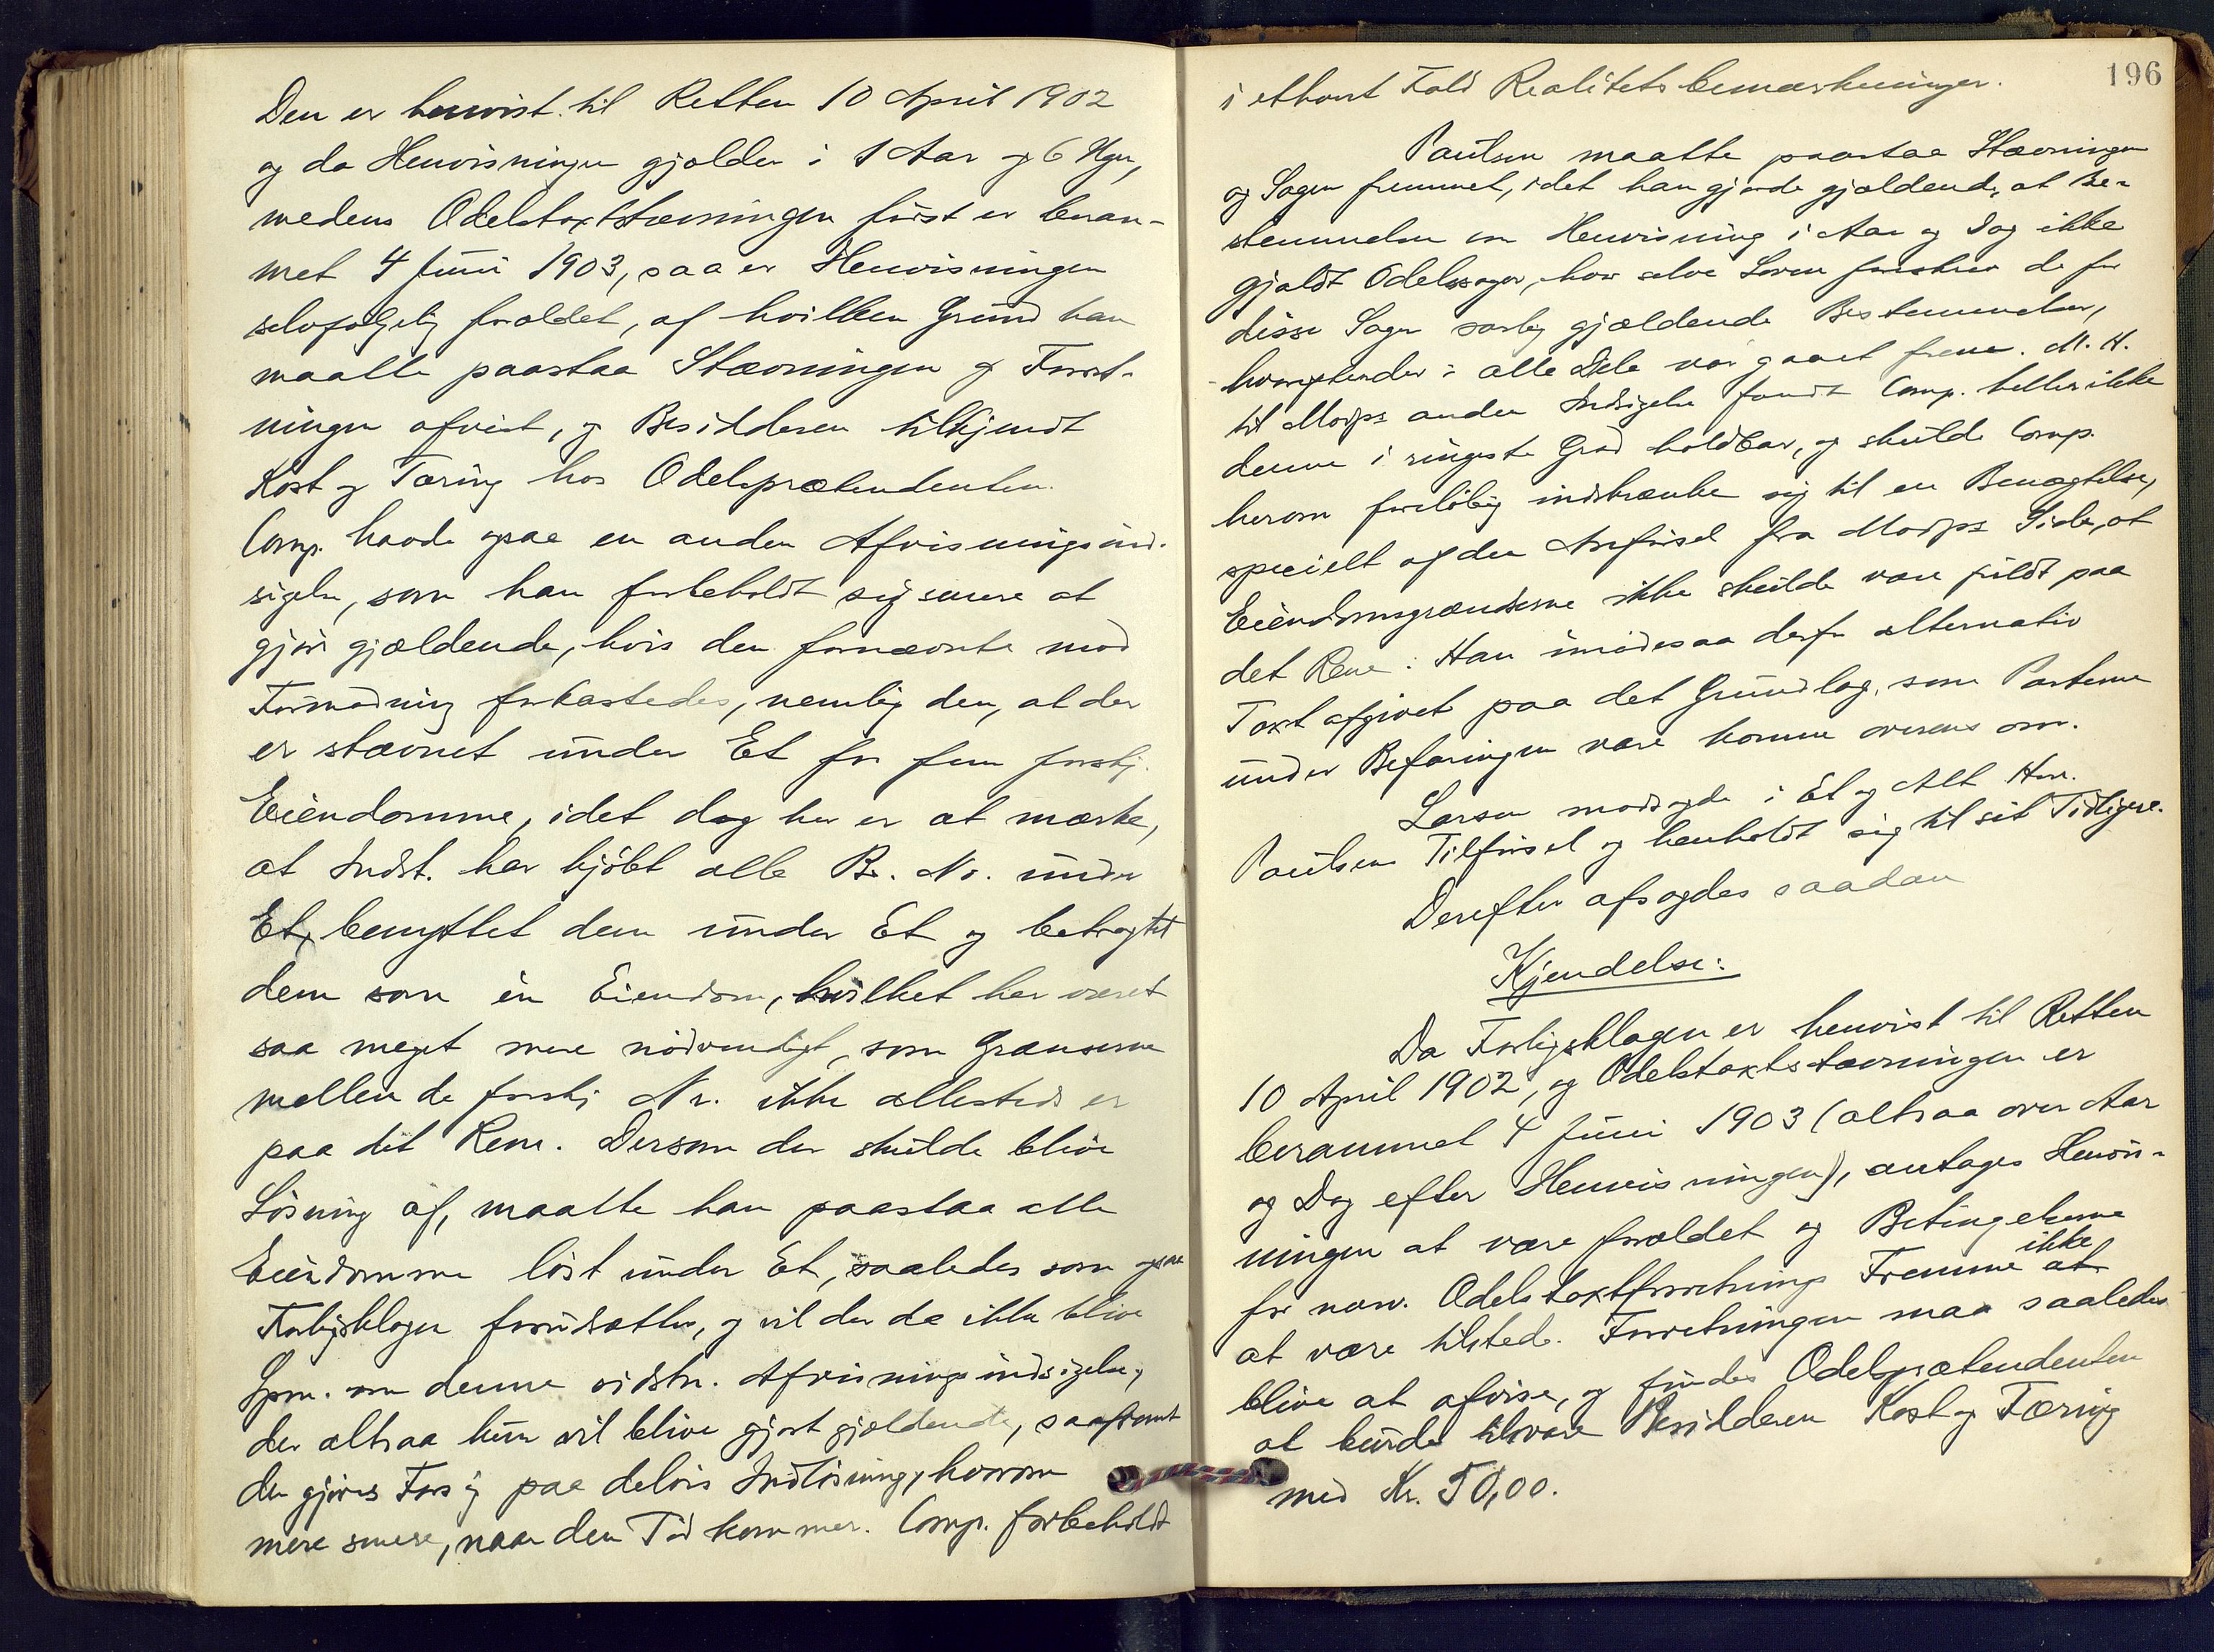 Den er henvist til Retten 10 April 1902
og da Henvisningen gjælder i 1 Aar og 6 Uger,
medens Odelstaxtstævningen først er beram-
met 4 Juni 1903, saa er Henvisningen
selvfølgelig forældet, af hvilken Grund han
maatte paastaa Stævningen og Forret-
ningen afvist, og Besidderen tilkjendt
Kost og Tæring hos Odelsprætendenten.
Comp. havde ogsaa en anden Afvisningsind-
sigelse, som han forbeholdt sig senere at
gjøre gjældende, hvis den fornævnte mod
Formodning forkastedes, nemlig den, at der
er stævnet under Et for fem forskj.
Eiendomme, idet dog her er at mærke,
at Indst. har kjøbt alle B. No. under
Et, benyttet dem under Et og betragtet
dem som èn Eiendom, hvilket har været
saa meget mere nødvendigt, som Grænserne
mellem de forskj. Nr. ikke allesteds er
paa det Rene. Dersom der skulde blive
Løsning af, maatte han paastaa alle
Eiendomme løst under Et, saaledes som ogsaa
Forligsklagen forudsætter, og vil der da ikke blive
Spm. om denne sidstn. Afvisningsindsigelse,
der altsaa kun vil blive gjort gjældende, saafremt
der gjøres Forsøg paa delvis Indløsning, hvorom
mere senere, naar den Tid kommer. Comp. forbeholdt
196
i ethvert Fald Realitetsbemærkninger.
Paulsen maatte paastaa Stævningen
og Sagen fremmet, idet han gjorde gjældende, at Be-
stemmelsen om Henvisning i Aar og Dag ikke
gjaldt Odelssager, hvor selve Loven foreskrev de for
disse Sager særlig gjældende Bestemmelser,
hvorefter der i alle Dele var gaaet frem. M. H.
til Modps anden Indsigelse fandt Comp. heller ikke
denne i ringeste Grad holdbar, og skulde Comp.
herom foreløbig indskrænke sig til en Benægtelse,
specielt af den Anførsel fra Modps Side, at
Eiendomsgrændserne ikke skulde være fuldt paa
det Rene. Han imødesaa derfor alternativ
Taxt afgivet paa det Grundlag, som Parterne
under Befaringen vare komne overens om.
Larsen modsagde i Et og Alt Hr.
Paulsens Tilførsel og henholdt sig til sit Tidligere.
Derefter afsagdes saadan
Kjendelse:
Da Forligsklagen er henvist til Retten
10 April 1902, og Odelstaxtstævningen er
berammet 4 Juni 1903 (altsaa over Aar
og Dag efter Henvisningen), antages Henvis-
ningen at være forældet og Betingelserne
for nærv. Odelstaxtforretnings Fremme ikke at
at være tilstede. Forretningen maa saaledes
blive at afvise, og findes Odelsprætendenten
at burde tilsvare Besidderen Kost og Tæring
med Kr. 50,00.